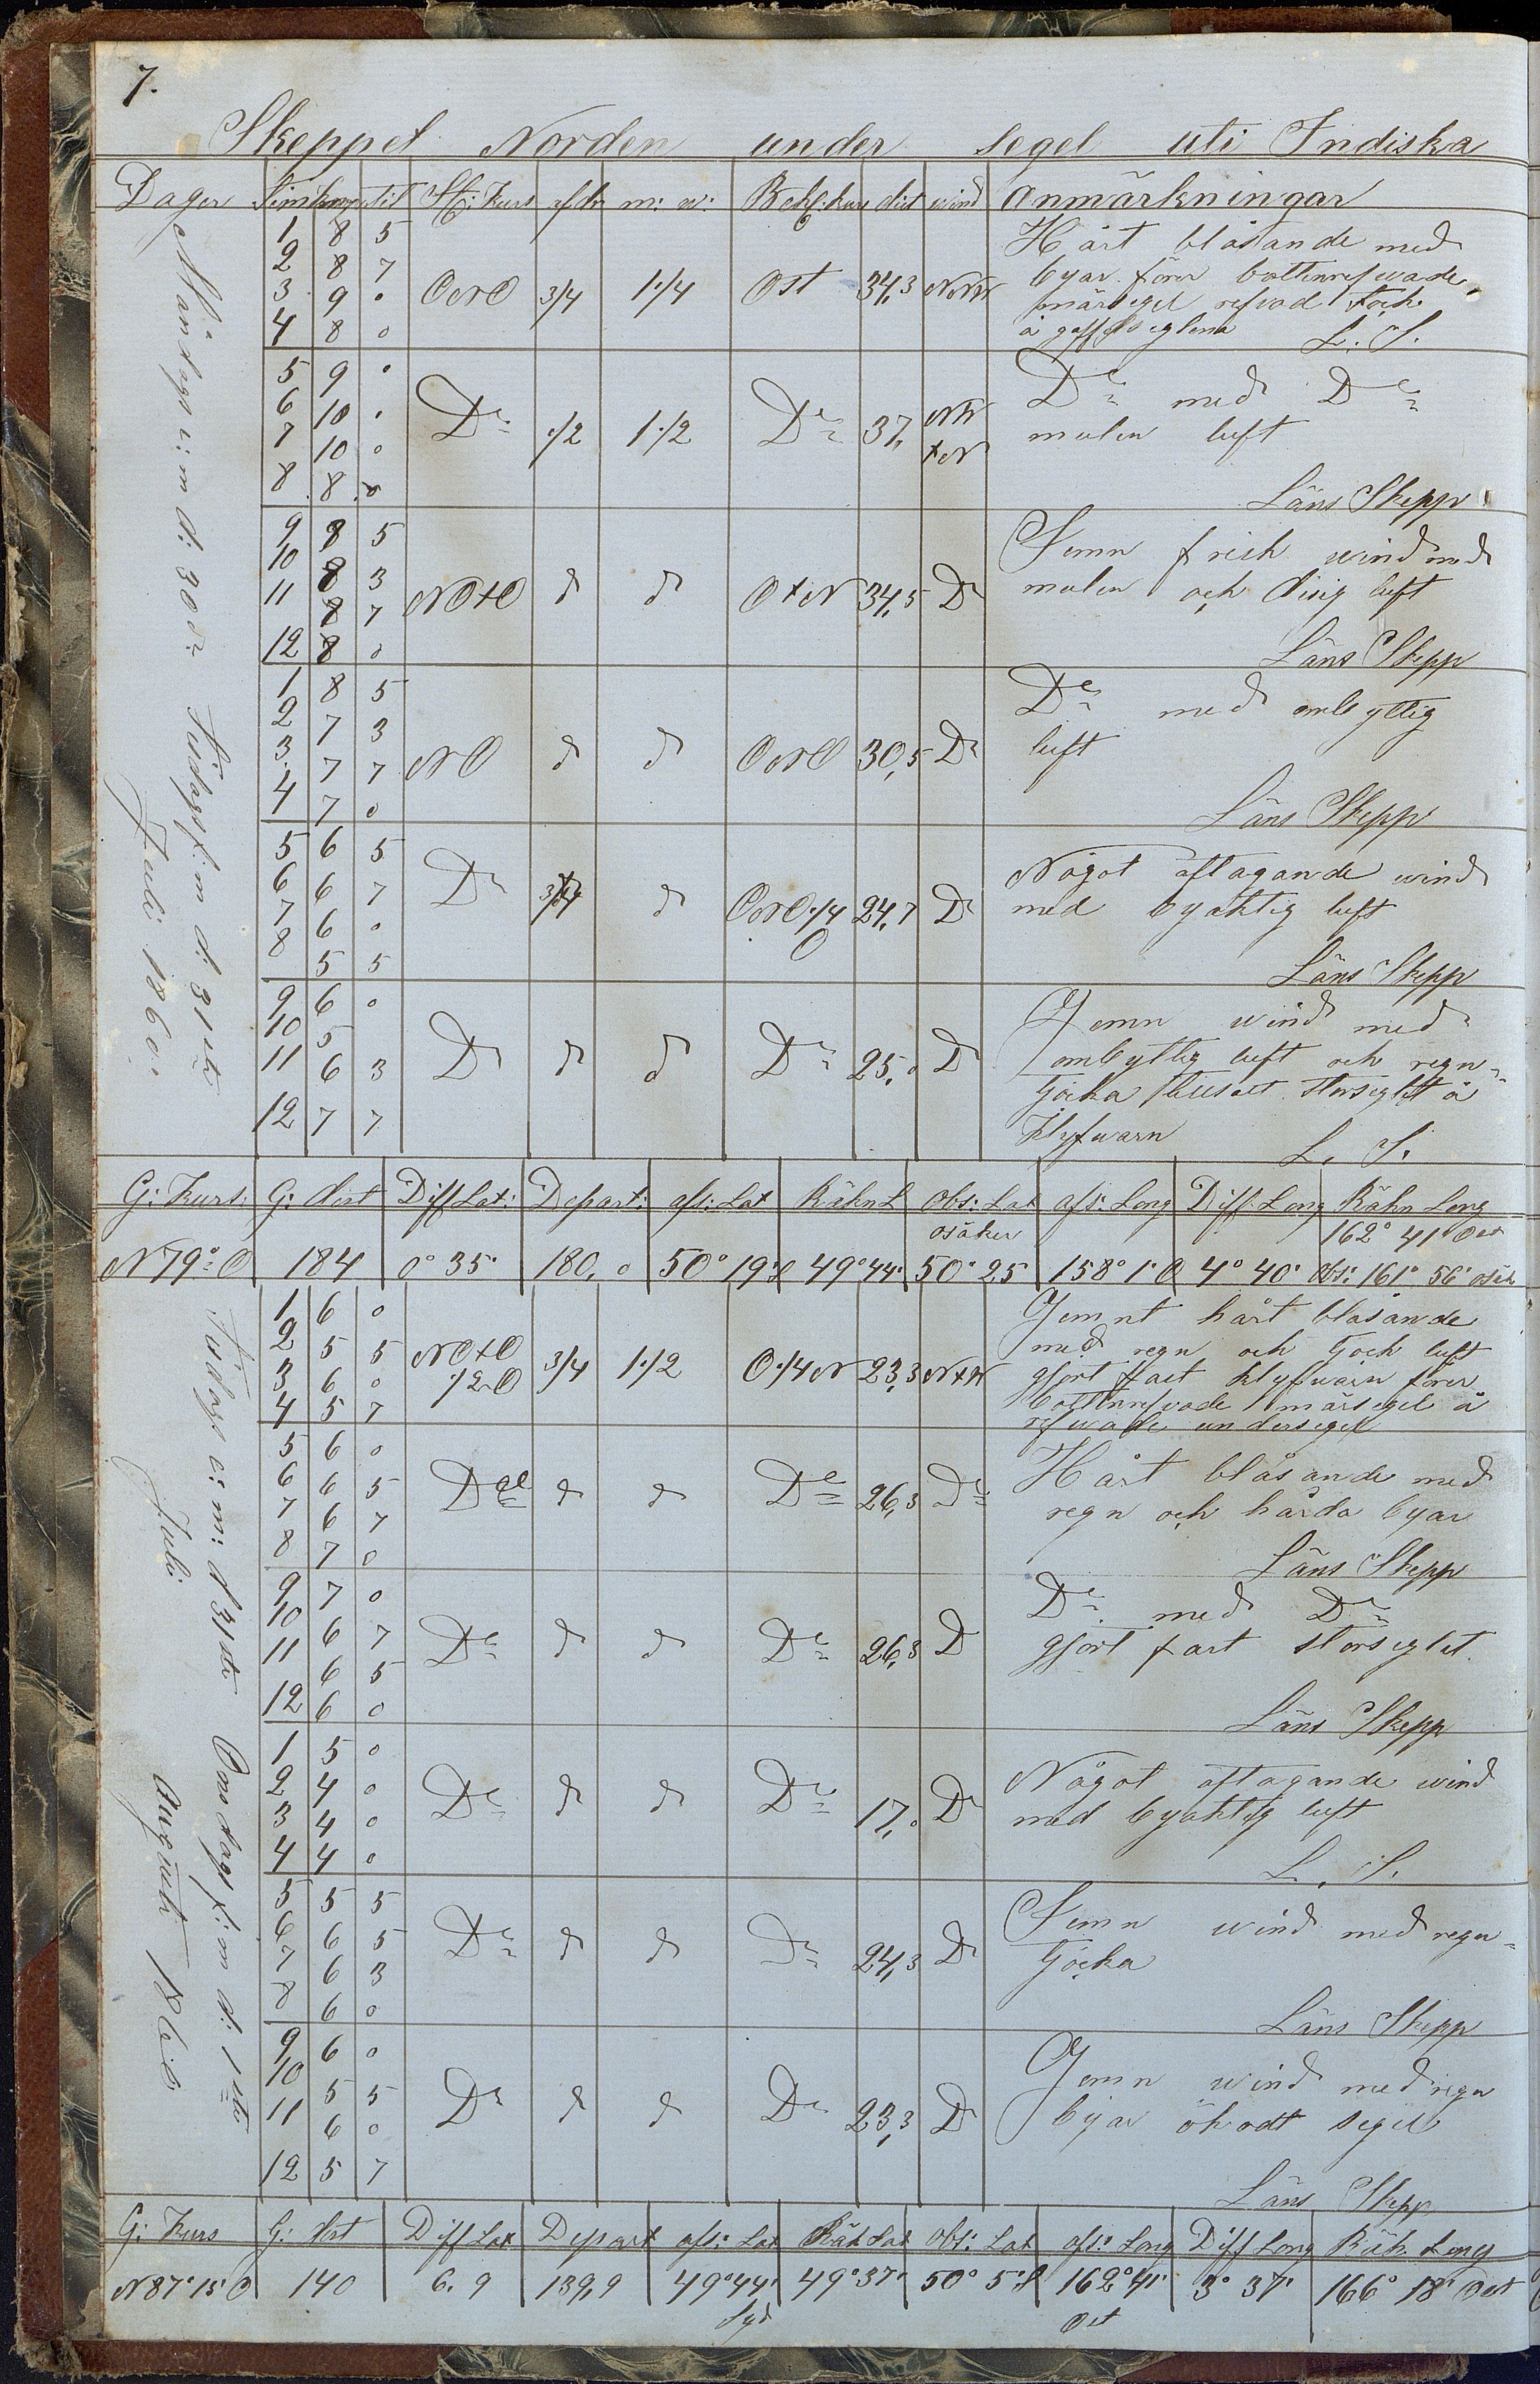 7.
Skeppet Norden under segel uti Indiska
Dagar Tim knop til St: Kurs afdr m: w: Beh: kurs dist wind Anmärkningar
Måndags e: m d: 30de Tisdags f: m d: 31sta
Juli 1860.
1 8 5
2 8 7
3 9 0
4 8 0
ONO 3/4 1 1/4 Ost 34,3 NNW
Hårt blåsande med
byar förer bottenrefwade
märsegel refvad fock
å gaffelseglena L. S.
5 9 0
6 10 0
7 10 0
8 8 0
Do 1/2 1 1/2 Do 37, NW
+N
De med De
mulen luft
Läns Skepp
9 8 5
10 8 3
11 8 7
12 8 0
NO+O d d O+N 34,5 D
Jemn frisk wind med
mulen och disig luft
Läns Skepp
1 8 5
2 7 3
3 7 7
4 7 0
NO d d ONO 30,5 D
De med ombytlig
luft
Läns Skepp
5 6 5
6 6 7
7 6 0
8 5 5
D 3/4 d ONO 1/4 O 24,7 D
Något aftagande wind
med byaktig luft
Läns Skepp
9 6 0
10 5
11 6 3
12 7 7
D d d De 25,0 D
Jemn wind med
ombytlig luft och regn-
tjocka tillsatt storseglet å
klyfwarn
L. S.
G: Kurs: G: dist Diff Lat: Depart: afs: Lat Räkn L Obs: Lat afs: Long Diff: Long Räkn Long
osäker 162° 41' Ost
N 79° O 184 0° 35' 180,0 50° 19' S 49° 44' 50° 25 158° 1' O 4° 40' Obs: 161° 56' osäk
Tisdags e: m: d 31sta Onsdags f: m d: 1sta
Juli Augusti 1860
1 6 0
2 5 5
3 6 0
4 5 7
NO+O
1/2 O 3/4 1 1/2 O 1/4 N 23,3 N+W
Jemnt hårt blåsande
med regn och tjock luft
gjort fast klyfwarn förer
bottenrefvade märsegel å
refwade undersegel
5 6 0
6 6 5
7 6 7
8 7 0
De d d De 26,3 De
Hårt blåsande med
regn och hårda byar
Läns Skepp
9 7 0
10 6 7
11 6 5
12 6 0
De d d De 26,3 D
De med De
gjort fast storseglet.
Läns Skepp
1 5 0
2 4 0
3 4 0
4 4 0
De d d De 17,0 D
Något aftagande wind
med byaktig luft
L. S.
5 5 5
6 6 5
7 6 3
8 6 0
De d d De 24,3 D
Jemn wind med regn-
tjocka
Läns Skepp
9 6 0
10 5 5
11 6 0
12 5 7
De d d De 23,3 D
Jemn wind med regn
byar ökadt segel
Läns Skepp
G: Kurs G: dist Diff Lat Depart afs: Lat Räk Lat Obs: Lat afs: Long Diff Long Räk. Long
N 87° 15' O 140 6. 9 139,9 49° 44' 49° 37' 50° 5' S 162° 41' 3° 37' 166° 18' Ost
Syd Ost